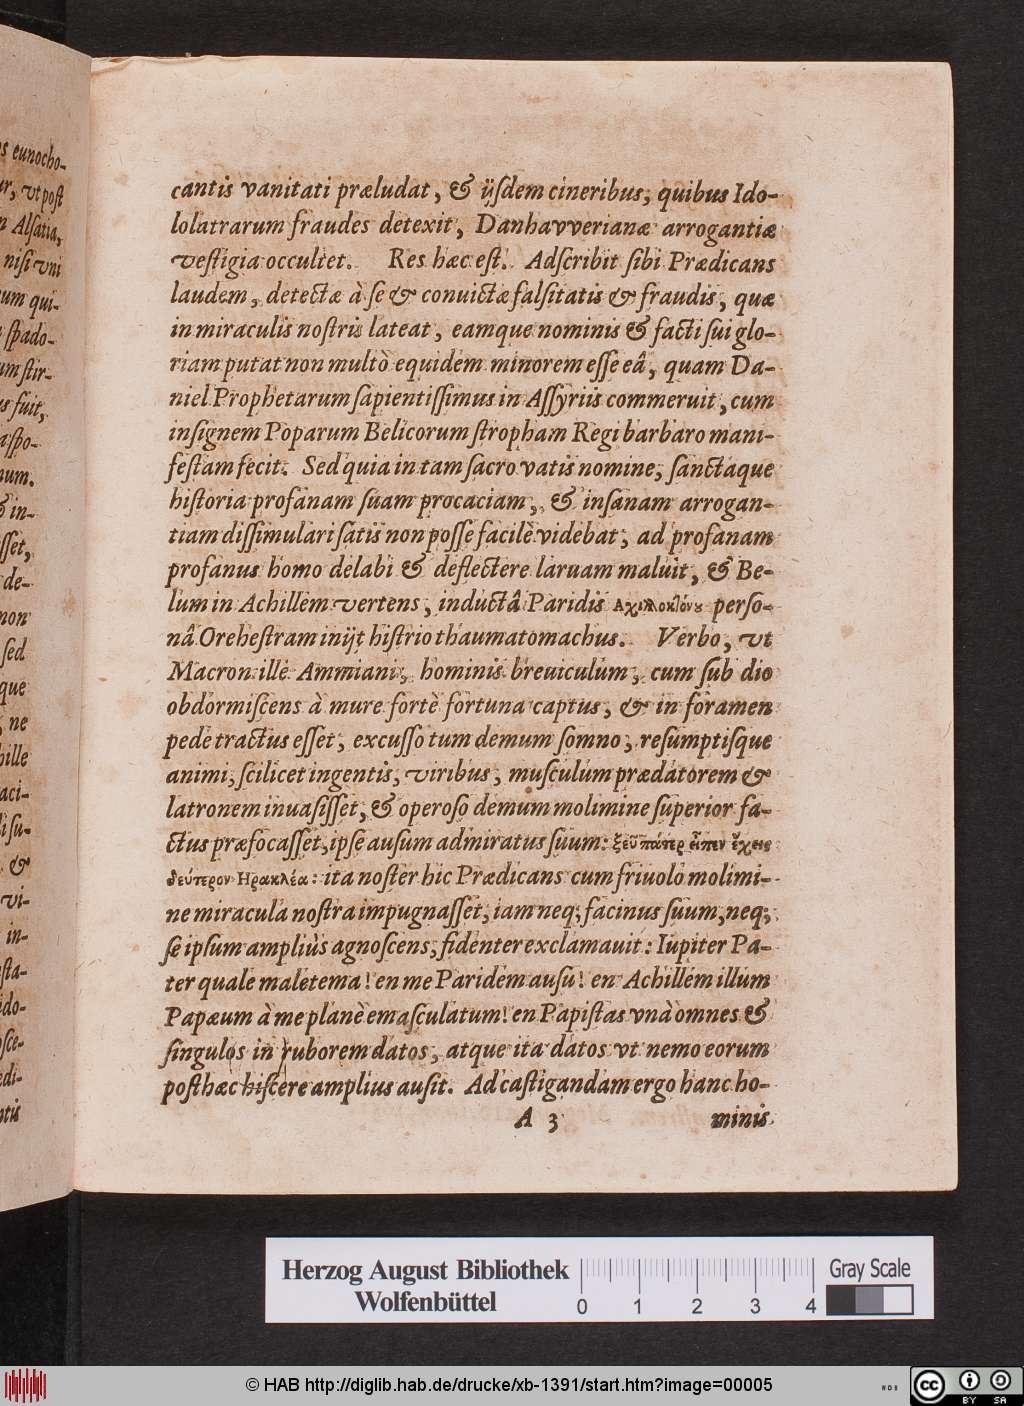 cantis vanitati præludat, & ijſdem cineribus, quibus Ido-
lolatrarum fraudes detexit, Danhavverianæ arrogantiæ
veſtigia occultet. Res hæc eſt. Adſcribit ſibi Prædicans
laudem, detectæ à ſe & convictæ falſitatis & fraudis, quæ
in miraculis noſtris lateat, eamque nominis & facti ſui glo-
riam putat non multò equidem minorem eſſe eâ, quam Da-
niel Prophetarum ſapientiſſimus in Aſſyriis commeruit, cum
inſignem Poparum Belicorum ſtropham Regi barbaro mani-
feſtam fecit. Sed quia in tam ſacro vatis nomine, ſanctaque
hiſtoria profanam ſuam procaciam, & inſanam arrogan-
tiam diſſimulari ſatis non poſſe facilè videbat, ad profanam
profanus homo delabi & deflectere laruam maluit, & Be-
lum in Achillem vertens, inductâ Paridis Αχιλλοκλόνου perſo-
nâ Orcheſtram inijt hiſtrio thaumatomachus. Verbo, vt
Macron ille Ammiani, hominis breuiculum, cum ſub dio
obdormiſcens à mure fortè fortuna captus, & in foramen
pede tractus eſſet, excuſſo tum demum ſomno, reſumptiſque
animi, ſcilicet ingentis, viribus, muſculum prædatorem &
latronem inuaſiſſet, & operoſo demum molimine ſuperior fa-
ctus præfocaſſet, ipſe auſum admiratus ſuum: ξεῦ πάτερ εἶπεν ἔχεις
δεύτερον Ηρακλέα: ita noſter hic Prædicans cum friuolo molimi-
ne miracula noſtra impugnaſſet, iam neq; facinus ſuum, neq;
ſe ipſum ampliùs agnoſcens, fidenter exclamauit: Iupiter Pa-
ter quale maletema! en me Paridem auſu! en Achillem illum
Papæum à me planè emaſculatum! en Papiſtas vnà omnes &
ſingulos in ruborem datos, atque ita datos vt nemo eorum
poſthæc hiſcere amplius auſit. Ad caſtigandam ergo hanc ho-
A 3 minis
s eunocho-
ur, vt poſt
n Alſatia,
niſi vni
um qui-
ſpado-
um ſtir-
s fuit,
aſpo-
num.
& in-
ſſet,
de-
non
ſed
que
, ne
hille
aci-
li ſu-
&
vi-
in-
ſta-
ido-
oſce-
edi-
ntis
Herzog August Bibliothek
Wolfenbüttel
0 1 2 3 4
Gray Scale
© HAB http://diglib.hab.de/drucke/xb-1391/start.htm?image=00005
cc BY SA